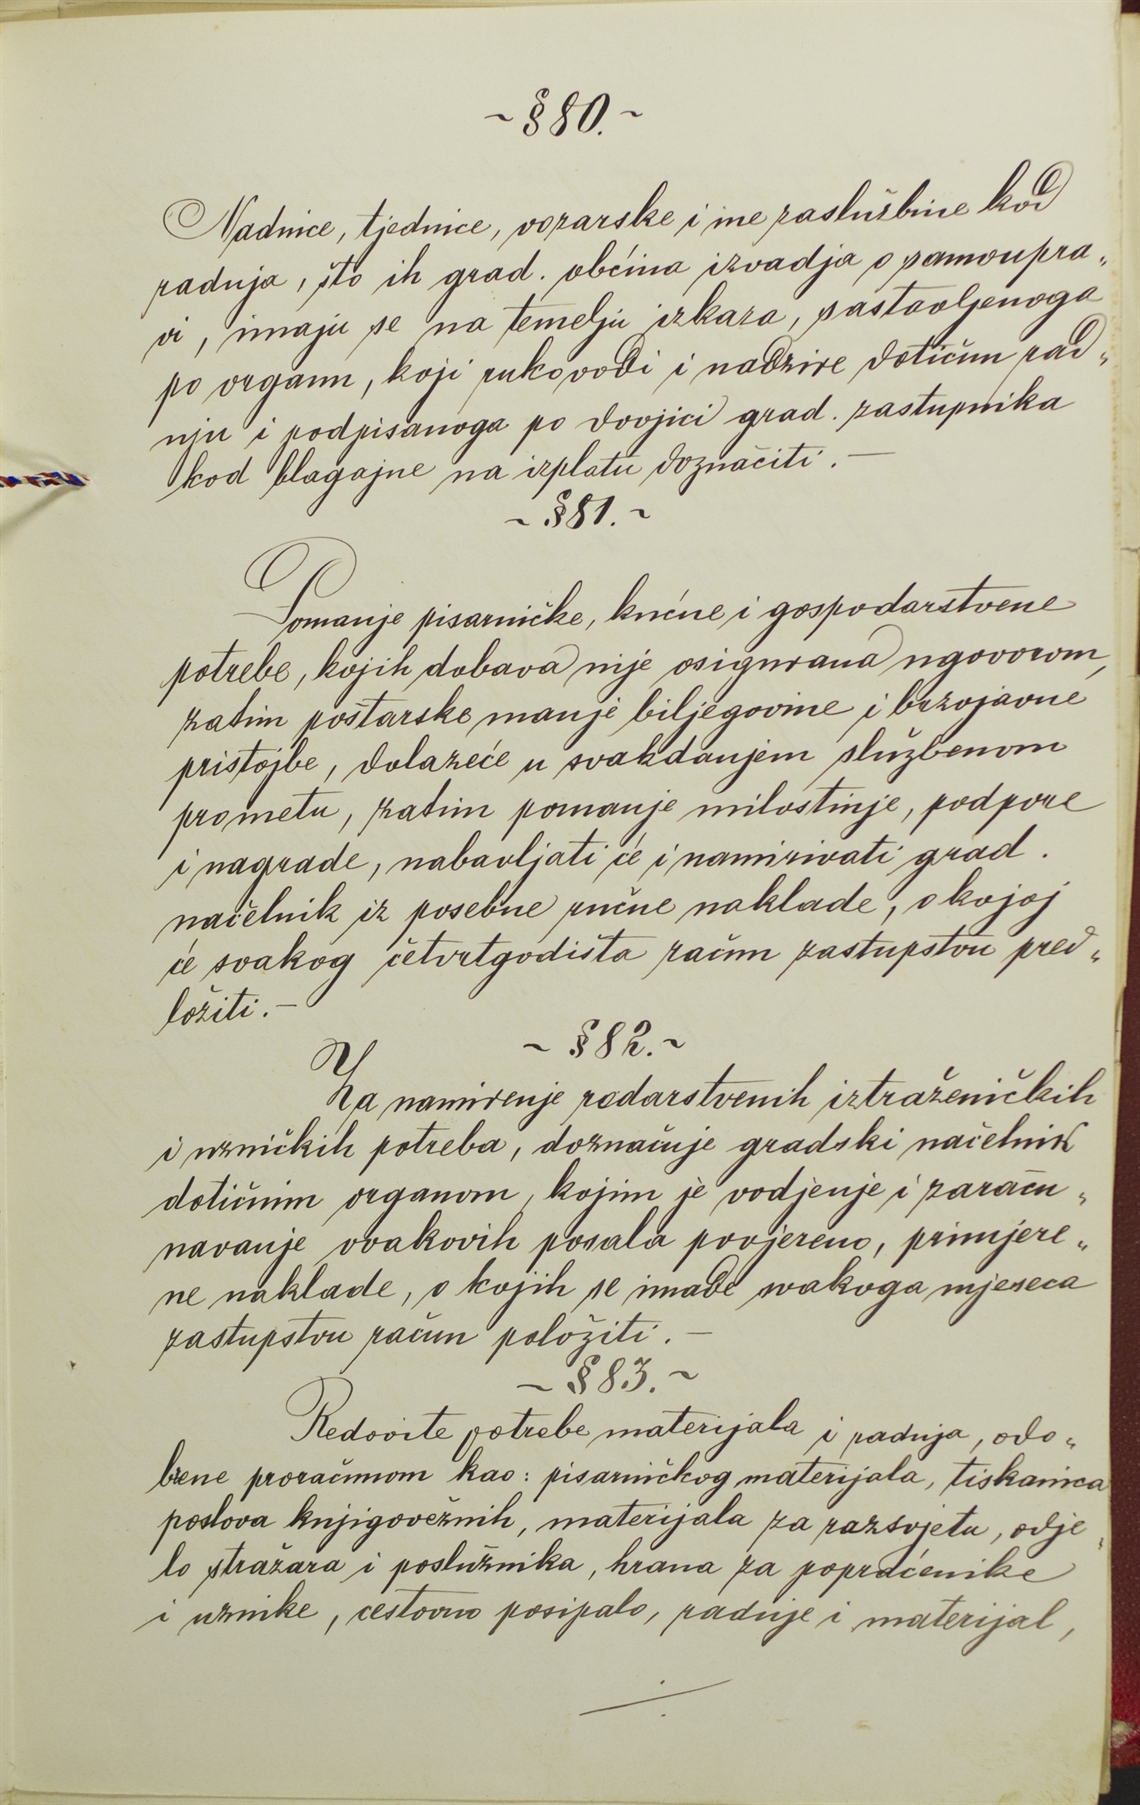 ~ § 80. ~
Nadnice, tjednice, vozarske i ine zaslužbine kod
radnja, što ih grad. obćina izvadja o samoupra„
vi, imaju se na temelju izkaza, sastavljenoga
po organu, koji rukovodi i nadzire dotičnu rad„
nju i podpisanoga po dvojici grad. zastupnika
kod blagajne na izplatu doznačiti. —
~ § 81. ~
Pomanje pisarničke, kućne i gospodarstvene
potrebe, kojih dobava nije osigurana ugovorom,
zatim poštarske manje biljegovine i brzojavne
pristojbe, dolazeće u svakdanjem službenom
prometu, zatim pomanje milostinje, podpore
i nagrade, nabavljati će i namirivati grad.
načelnik iz posebne ručne naklade, o kojoj
će svakog četvrtgodišta račun zastupstvu pred„
ložiti. —
~ § 82. ~
Za namirenje redarstvenih iztraženičkih
i uzničkih potreba, doznačuje gradski načelnik
dotičnim organom, kojim je vodjenje i zaraču„
navanje ovakovih posala povjereno, primjere„
ne naklade, o kojih se imade svakoga mjeseca
zastupstvu račun položiti. —
~ § 83. ~
Redovite potrebe materijala i radnja, odo„
brene proračunom kao: pisarničkog materijala, tiskanica
poslova knjigovežnih, materijala za razsvjetu, odje„
lo stražara i poslužnika, hrana za popraćenike
i uznike, cestovno posipalo, radnje i materijal,